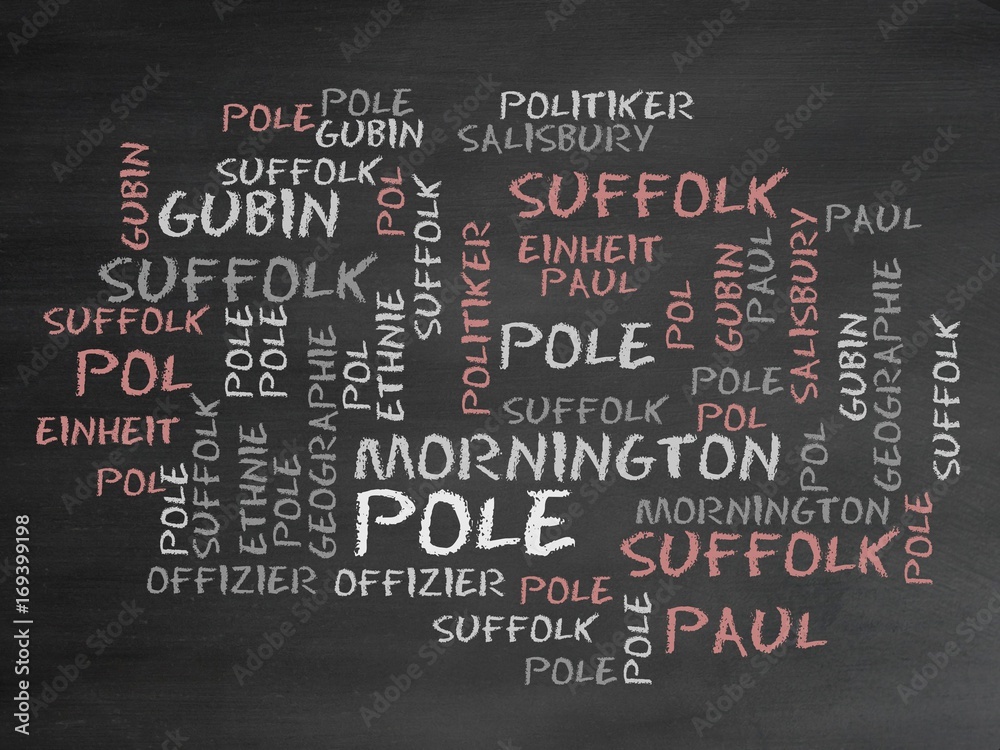 POLE
POLE
POLITIKER
GUBIN
SALISBURY
SUFFOLK
GUBIN
POL
SUFFOLK
SUFFOLK
GUBIN
POLITIKER
EINHEIT
PAUL
GUBIN
PAUL
SALISBURY
PAUL
SUFFOLK
SUFFOLK
POLE
POLE
GEOGRAPHIE
POL
ETHNIE
POLE
POL
POLE
GUBIN
GEOGRAPHIE
SUFFOLK
POL
SUFFOLK
POL
EINHEIT
POL
POLE
SUFFOLK
ETHNIE
POLE
MORNINGTON
POL
POLE
MORNINGTON
SUFFOLK
POLE
OFFIZIER
OFFIZIER
POLE
SUFFOLK
POLE
PAUL
POLE
Adobe Stock | #169399198